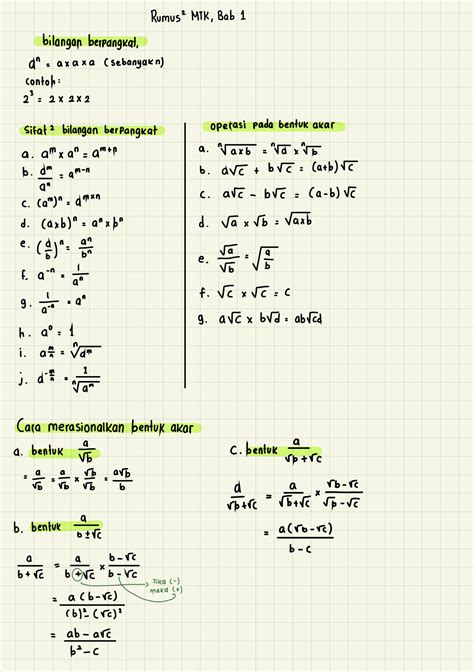 Rumus² MTK, Bab 1
bilangan berpangkat,
aⁿ = a x a x a (sebanyak n)
contoh :
2³ = 2 x 2 x 2
Sifat² bilangan berpangkat
a. aᵐ x aⁿ = aᵐ⁺ⁿ
b. aᵐ/aⁿ = aᵐ⁻ⁿ
c. (aᵐ)ⁿ = aᵐˣⁿ
d. (axb)ⁿ = aⁿ x bⁿ
e. (a/b)ⁿ = aⁿ/bⁿ
f. a⁻ⁿ = 1/aⁿ
g. 1/a⁻ⁿ = aⁿ
h. a⁰ = 1
i. a^(m/n) = ⁿ√aᵐ
j. a^(-m/n) = 1/ⁿ√aᵐ
operasi pada bentuk akar
a. ⁿ√axb = ⁿ√a x ⁿ√b
b. a√c + b√c = (a+b)√c
c. a√c - b√c = (a-b)√c
d. √a x √b = √axb
e. √a/√b = √(a/b)
f. √c x √c = c
g. a√c x b√d = ab√cd
Cara merasionalkan bentuk akar
a. bentuk a/√b
= a/√b = a/√b x √b/√b = a√b/b
b. bentuk a/(b±√c)
a/(b+√c) = a/(b+√c) x (b-√c)/(b-√c)
Jika (-)
maka (+)
= a(b-√c)/((b)²-(√c)²)
= (ab-a√c)/(b²-c)
c. bentuk a/(√b+√c)
a/(√b+√c) = a/(√b+√c) x (√b-√c)/(√b-√c)
= a(√b-√c)/(b-c)